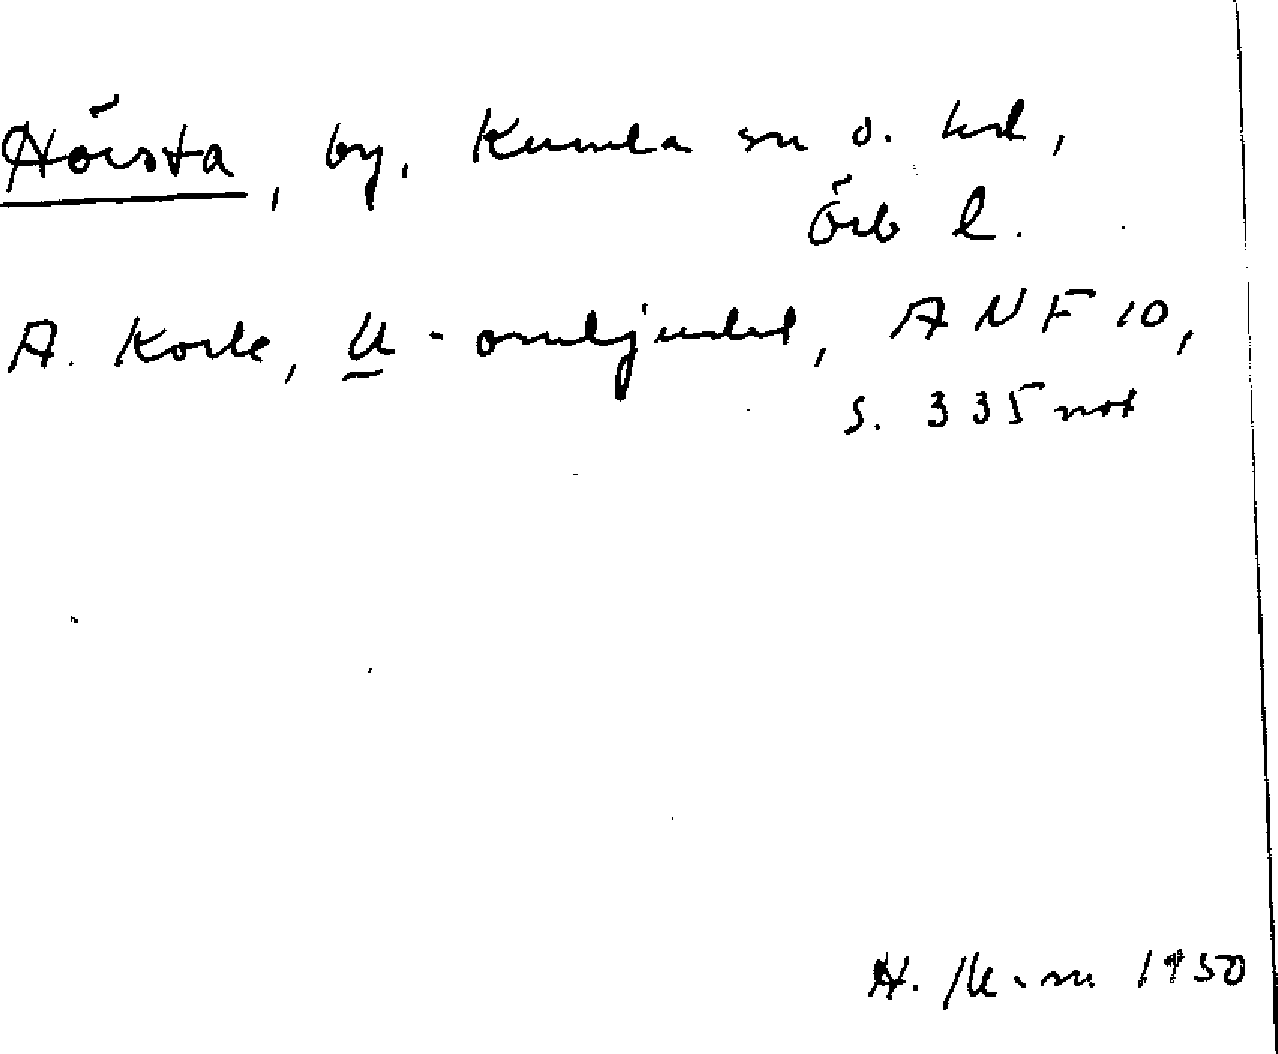 Hörsta, by, Kumla sn o. hd,
Örb l.
A. Kock, U-omljudet, ANF 10,
s. 335 not
1950